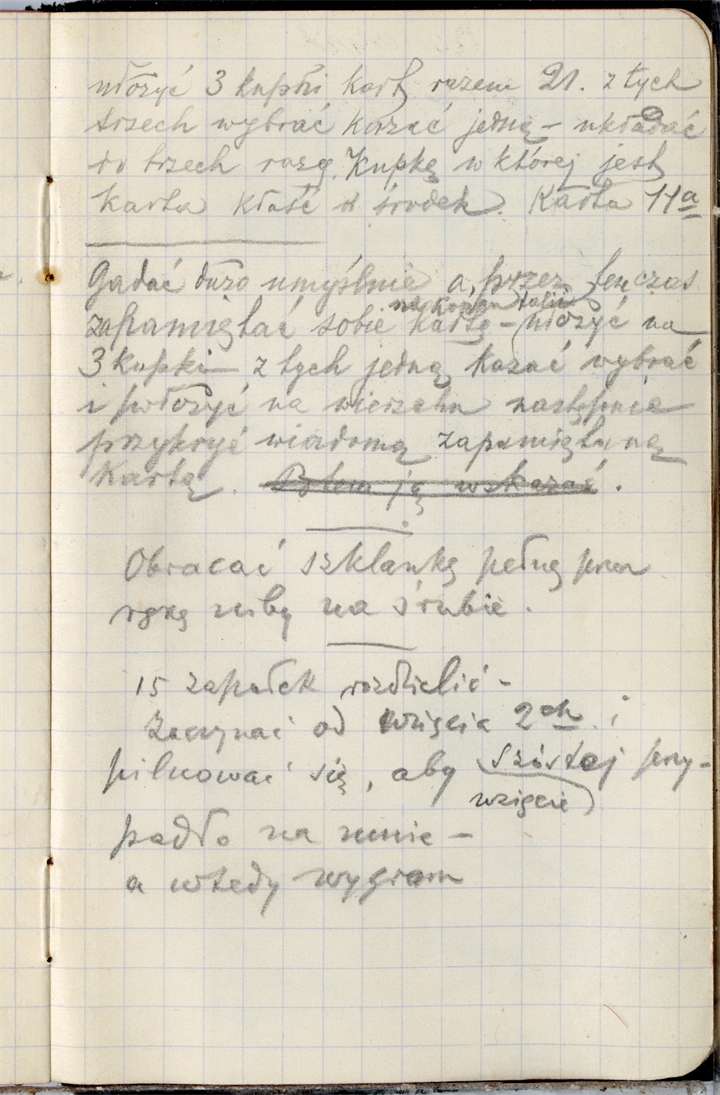 ułożyć 3 kupki kart razem 21. z tych
trzech wybrać kazać jedną – układać
do trzech razy. Kupkę w której jest
karta kłaść w środek. Karta 11a
Gadać dużo umyślnie a przez ten czas
na koniec talii
zapamiętać sobie kartę – ułożyć na
3 kupki – z tych jedną kazać wybrać
i położyć na wierzchu następnie
przykryć wiadomą zapamiętaną
Kartą. Potem ją wskazać.
Obracać szklankę pełną przez
rękę niby na śrubie.
15 zapałek rozdzielić –
Zaczynać od wzięcia 2ch i
pilnować się, aby szóstej przy-
wzięcie
padło na mnie –
a wtedy wygram